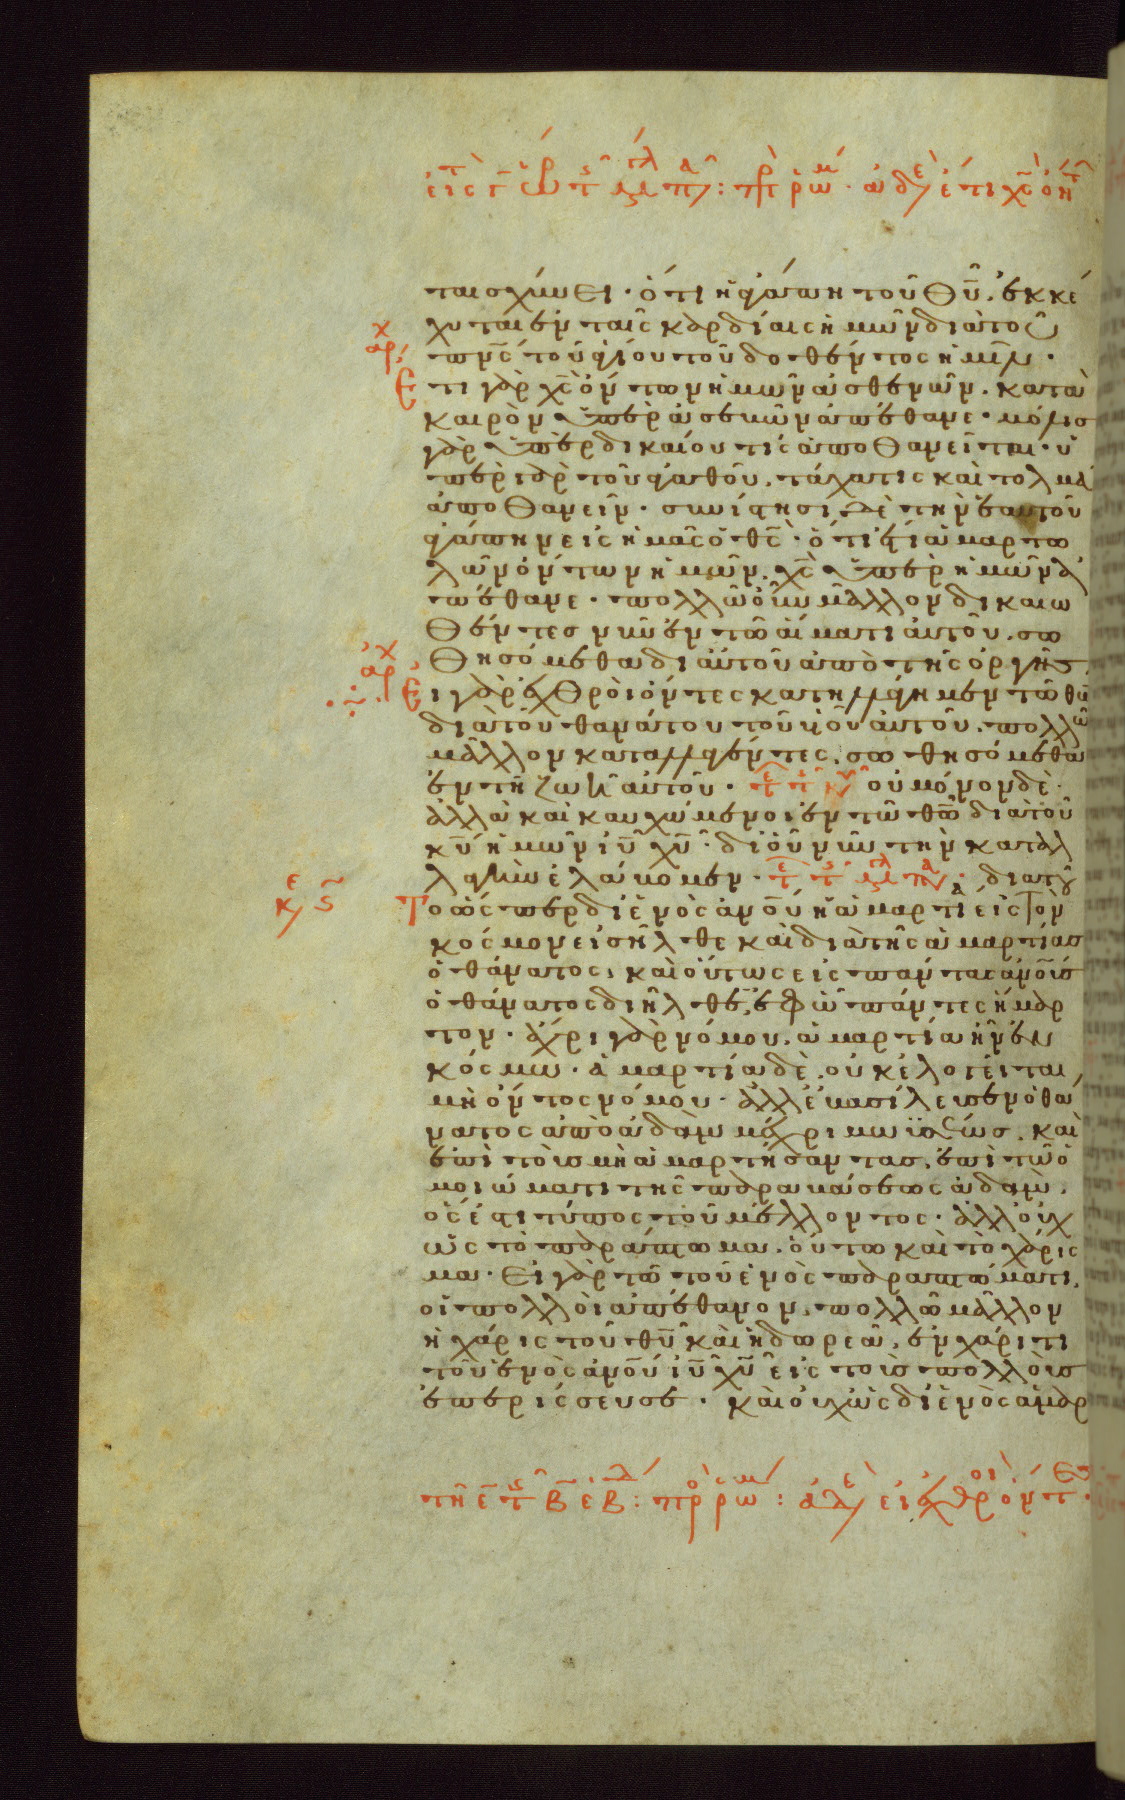 ταισχύνει· ὅτι ἡ ἀγάπη τοῦ θ̅υ̅, ἐκκέ
χυται ἐν ταῖς καρδίαις ἡμῶν διὰ το
π̅ν̅ς̅ τοῦ ἁγίου τοῦ δοθέντος ἡμῖν·
ἀρχ
Ἔτι γὰρ χ̅ς̅ ὄντων ἡμῶν ἀσθενῶν, κατὰ
καιρὸν ὑπὲρ ἀσεβῶν ἀπέθανε· μόλις
γὰρ ὑπὲρ δικαίου τίς ἀποθανεῖται· ὑ
πὲρ γὰρ τοῦ ἀγαθοῦ, τάχα τις καὶ τολμᾶ
ἀποθανεῖν· συνίστησι δὲ τὴν ἑαυτοῦ
ἀγάπην εἰς ἡμᾶς ὁ θ̅ς̅· ὅτι ἔτι ἁμαρτω
λῶν ὄντων ἡμῶν, χ̅ς̅ ὑπὲρ ἡμῶν ἀ
πέθανε· πολλῶ οὖν μᾶλλον δικαιω
θέντες νῦν ἐν τῶ αἵματι αὐτοῦ, σω
θησόμεθα δι αὐτοῦ ἀπὸ τῆς ὀργῆς,
ἀρχ
Εἰ γὰρ ἐχθροὶ ὄντες κατηλλάγημεν τῶ θ̅ω̅
διὰ τοῦ θανάτου τοῦ υἱοῦ αὐτοῦ, πολλῶ
μᾶλλον καταλλαγέντες, σωθησόμεθα
ἐν τῆ ζωῆ αὐτοῦ· οὐ μόνον δὲ·
ἀλλὰ καὶ καυχώμενοι ἐν τῶ θ̅ω̅ διὰ τοῦ
κ̅υ̅ ἡμῶν ι̅υ̅ χ̅υ̅· δι οὗ νῦν τὴν καταλ
λαγὴν ἐλάβομεν· διατοῦ
κε ϛ
Το ὥσπερ δι ἑνὸς ἀ̅ν̅ο̅υ̅ ἡ ἁμαρτία εἰς τὸν
κόσμον εἰσῆλθε καὶ διὰ τῆς ἁμαρτίας
ὁ θάνατος, καὶ οὕτως εἰς πάντας ἀ̅ν̅ο̅υ̅ς̅
ὁ θάνατος διῆλθεν, ἐφ ὧ πάντες ἥμαρ
τον· ἄχρι γὰρ νόμου, ἁμαρτία ἦν ἐν
κόσμω· ἁμαρτία δὲ, οὐκ ἐλογεῖται
μὴ ὄντος νόμου· ἀλλ ἐβασίλευσεν ὁ θά
νατος ἀπὸ ἀδὰμ μέχρι μωϋσέως, καὶ
ἐπὶ τοὺς μὴ ἁμαρτήσαντας, ἐπὶ τῶ ὁ
μοιώματι τῆς παραβάσεως ἀδάμ,
ὅς ἐστι τύπος τοῦ μέλλοντος· ἀλλ οὐχ
ὡς τὸ παράπτωμα, οὕτω καὶ τὸ χάρις
μα· Εἰ γὰρ τῶ τοῦ ἑνὸς παραπτώματι,
οἱ πολλοὶ ἀπέθανον, πολλῶ μᾶλλον
ἡ χάρις τοῦ θ̅υ̅ καὶ ἡ δωρεὰ, ἐν χάριτι
τοῦ ἑνὸς ἀ̅ν̅ο̅υ̅ ι̅υ̅ χ̅υ̅ εἰς τοὺς πολλοὺς
ἐπερίσσευσε· καὶ οὐχ ὡς δι ἑνὸς ἁμαρ